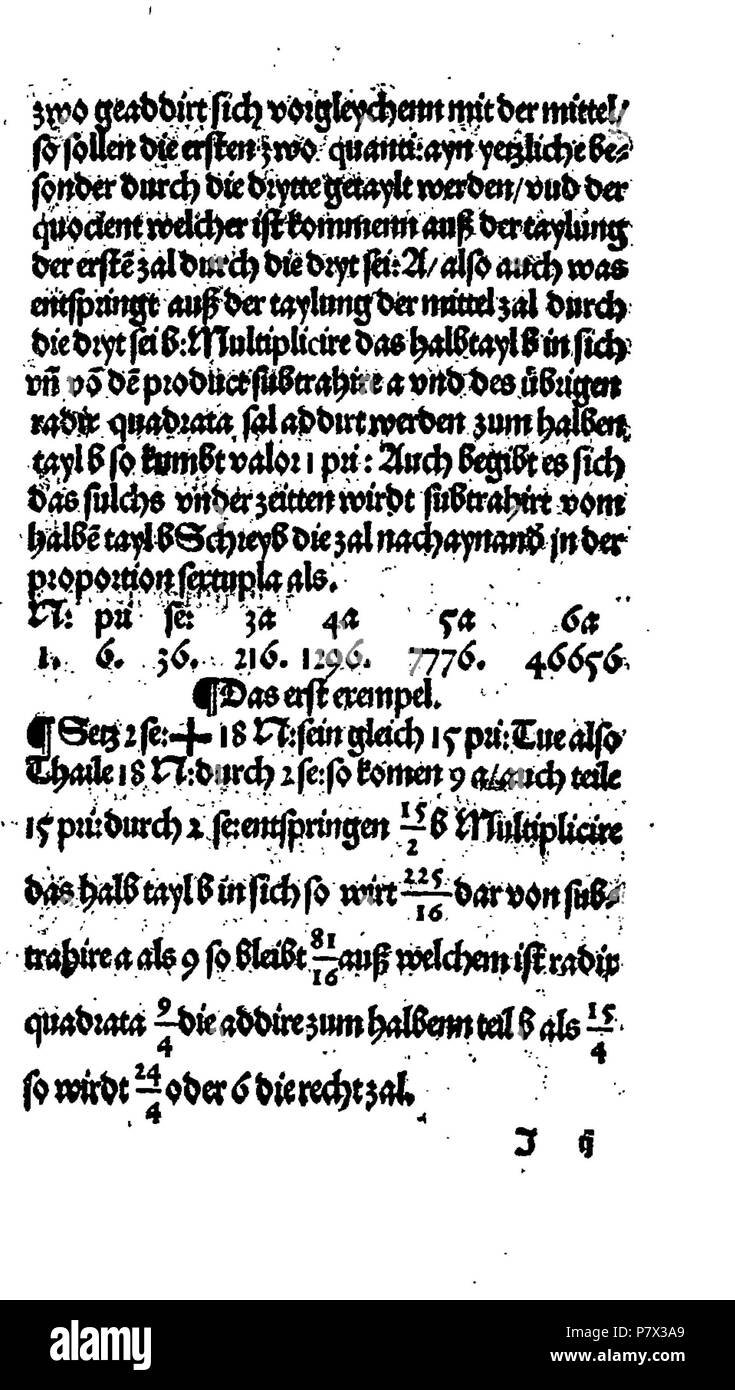 zwo geaddirt sich vorgleychenn mit der mittel/
so sollen die ersten zwo quanti: ayn yetzliche be⸗
sonder durch die drytte getaylt werden/ vnd der
quocient welcher ist kommenn auß der taylung
der erstẽ zal durch die dryt sei: A/ also auch was
entspringt auß der taylung der mittel zal durch
die dryt sei b: Multiplicire das halb tayl b in sich
vñ võ dẽ product subtrahire a vnd des übrigen
radix quadrata sal addirt werden zum halben
tayl b so kumbt valor 1 pri: Auch begibt es sich
das sulchs vnder zeitten wirdt subtrahirt vom
halbẽ tayl b Schreyb die zal nach aynand jn der
proportion sextupla als.
N: pri se: 3a 4a 5a 6a
1. 6. 36. 216. 1296. 7776. 46656.
¶ Das erst exempel.
¶ Setz 2 se: + 18 N: sein gleich 15 pri: Tue also
Thaile 18 N: durch 2 se: so komen 9 a/ auch teile
15 pri: durch 2 se: entspringen 15/2 b Multiplicire
das halb tayl b in sich so wirt 225/16 dar von sub⸗
trahire a als 9 so bleibt 81/16 auß welchem ist radix
quadrata 9/4 die addire zum halbenn teil b als 15/4
so wirdt 24/4 oder 6 die recht zal.
J ij
alamy
Image ID: P7X3A9
www.alamy.com